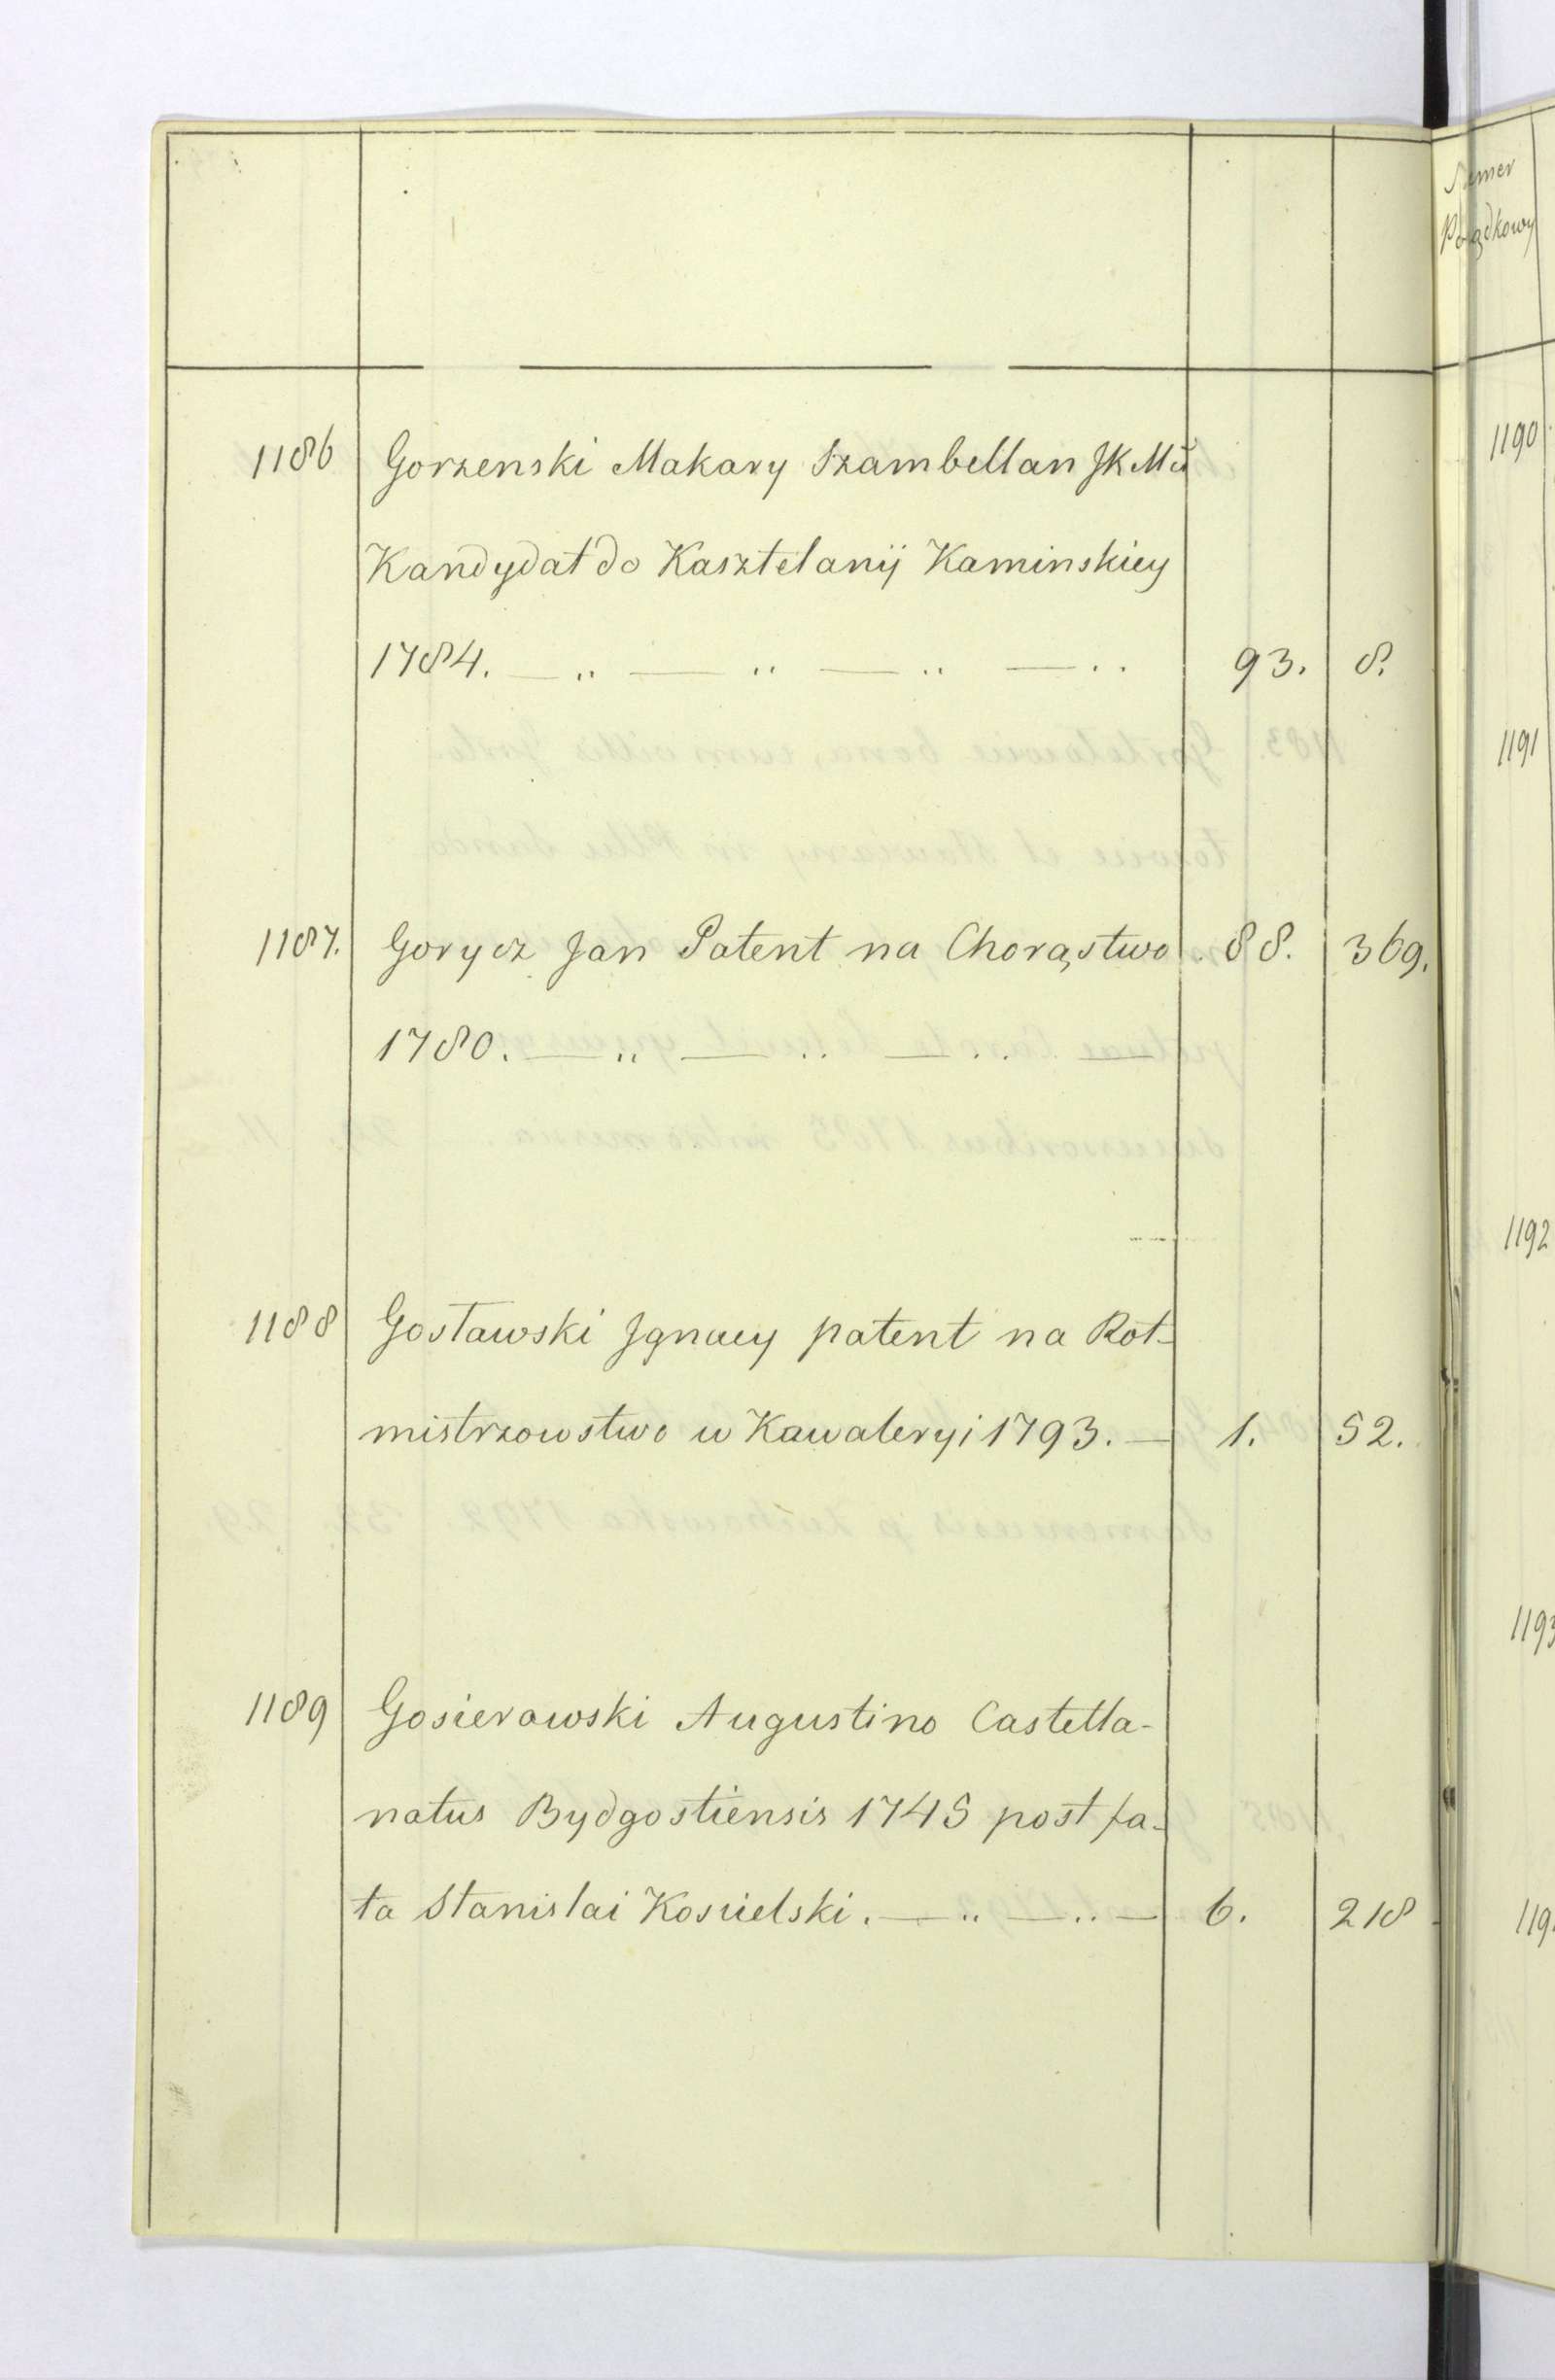 1186 Gorzenski Makary Szambellan JKMci
Kandydat do Kasztelanij Kaminskiey
1784. — „ — „ — „ — „ 93. 8.
1187. Gorycz Jan Patent na Chorąstwo 88. 369.
1780. — „ — „ — „ —
1188 Gosławski Jgnacy patent na Rot-
mistrzowstwo w Kawaleryi 1793. — 1. 52.
1189 Gosierowski Augustino Castella-
natus Bydgostiensis 1745 post fa-
ta Stanislai Koscielski. — „ — „ — 6. 218
Numer
Porządkowy
1190
1191
1192
1193